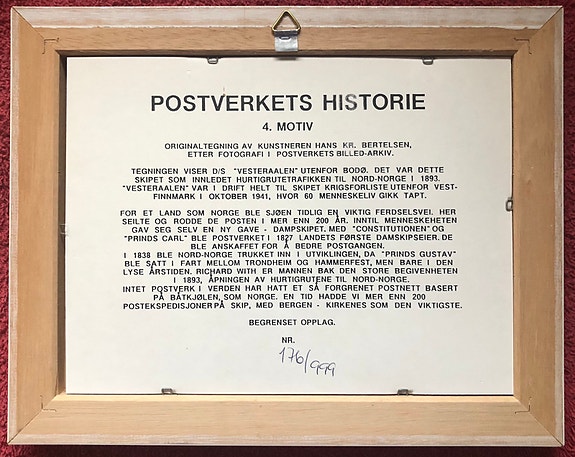 POSTVERKETS HISTORIE
4. MOTIV
ORIGINALTEGNING AV KUNSTNEREN HANS KR. BERTELSEN,
ETTER FOTOGRAFI I POSTVERKETS BILLED-ARKIV.
TEGNINGEN VISER D/S "VESTERAALEN" UTENFOR BODØ. DET VAR DETTE
SKIPET SOM INNLEDET HURTIGRUTETRAFIKKEN TIL NORD-NORGE I 1893.
"VESTERAALEN" VAR I DRIFT HELT TIL SKIPET KRIGSFORLISTE UTENFOR VEST-
FINNMARK I OKTOBER 1941, HVOR 60 MENNESKELIV GIKK TAPT.
FOR ET LAND SOM NORGE BLE SJØEN TIDLIG EN VIKTIG FERDSELSVEI. HER
SEILTE OG RODDE DE POSTEN I MER ENN 200 ÅR. INNTIL MENNESKEHETEN
GAV SEG SELV EN NY GAVE - DAMPSKIPET. MED "CONSTITUTIONEN" OG
"PRINDS CARL" BLE POSTVERKET I 1827 LANDETS FØRSTE DAMSKIPSEIER. DE
BLE ANSKAFFET FOR Å BEDRE POSTGANGEN.
I 1838 BLE NORD-NORGE TRUKKET INN I UTVIKLINGEN, DA "PRINDS GUSTAV"
BLE SATT I FART MELLOM TRONDHEIM OG HAMMERFEST, MEN BARE I DEN
LYSE ÅRSTIDEN. RICHARD WITH ER MANNEN BAK DEN STORE BEGIVENHETEN
I 1893, ÅPNINGEN AV HURTIGRUTENE TIL NORD-NORGE.
INTET POSTVERK I VERDEN HAR HATT ET SÅ FORGRENET POSTNETT BASERT
PÅ BÅTKJØLEN, SOM NORGE. EN TID HADDE VI MER ENN 200
POSTEKSPEDISJONER PÅ SKIP, MED BERGEN - KIRKENES SOM DEN VIKTIGSTE.
BEGRENSET OPPLAG.
NR.
176/999